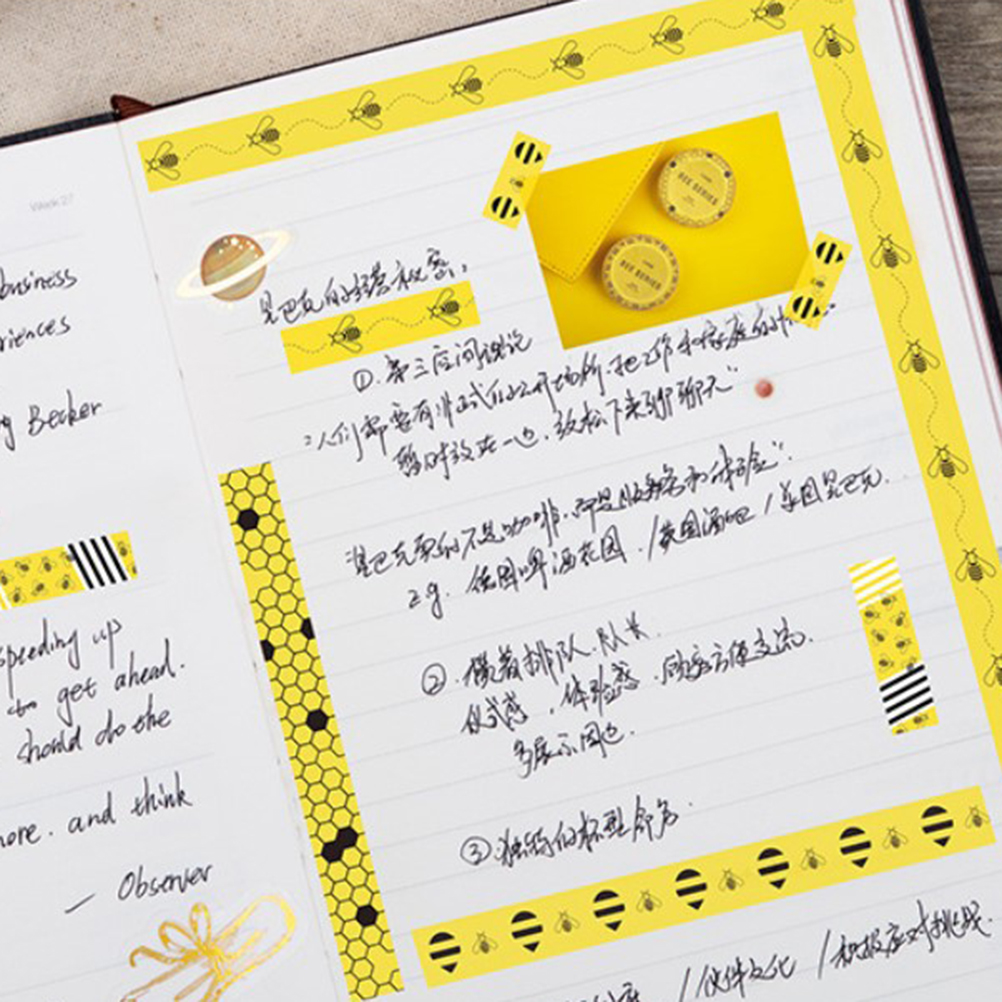 Week 27
business
riences
Becker
speeding up
to get ahead.
should do the
more. and think
— Observer
星巴克的经营秘密.
BEE SERIES
BEE SERIES
①. 第三空间理论
"人们需要有非正式的公开场所, 把工作和家庭的
暂时放在一边, 放松下来聊聊天"
星巴克卖的不是咖啡, 而是服务和体验".
e.g. 德国啤酒花园. /英国酒吧 /美国星巴克.
②. 横着排队. 队长.
仪式感, 体验感. 顾客方便交流.
多展示周边.
③独特的杯型命名.
/伙伴文化 /积极应对挑战.